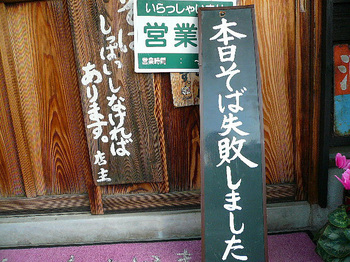 いらっしゃいませ
営業
営業時間
本日そば失敗しました
そば
しっぱいしなければ
あります。
店主